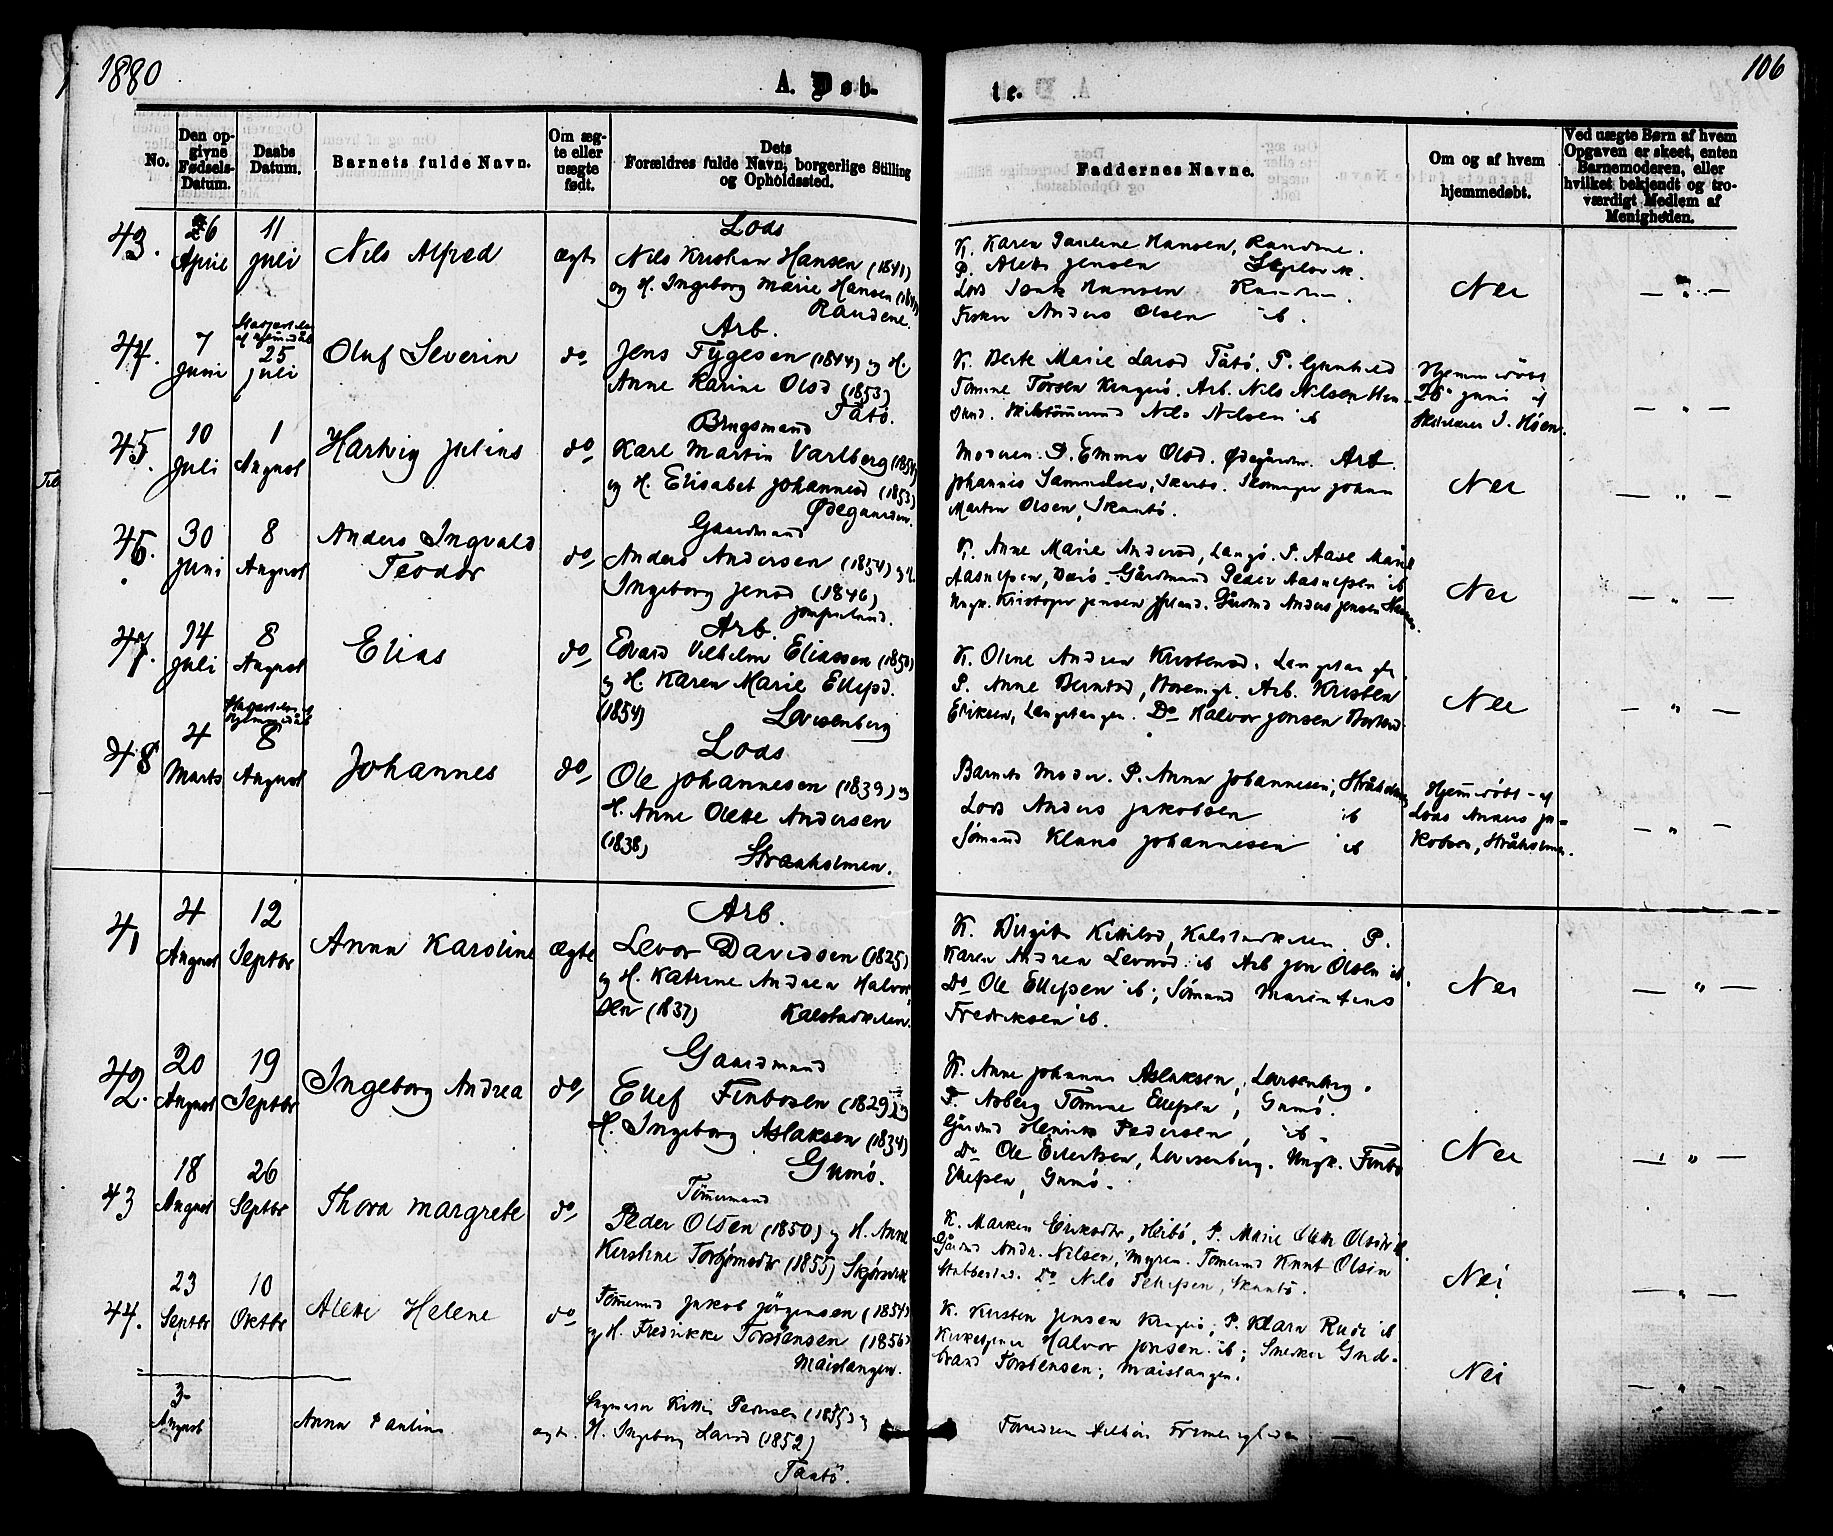 1880
A. Døb-
te.
106
No.
Den opgivne Fødsels-Datum.
Daabs Datum.
Barnets fulde Navn.
Om ægte eller uægte født.
Dets Forældres fulde Navn, borgerlige Stilling og Opholdssted.
Faddernes Navne.
Om og af hvem hjemmedøbt.
Ved uægte Børn af hvem Opgaven er skeet, enten Barnemoderen, eller hvilket bekjendt og troværdigt Medlem af Menigheden.
43.
26 April
11 Juli
Nils Alfred
ægte
Lods
Nils Kristian Hansen (1841)
og H. Ingeborg Marie Hansen
Randene.
K. Karen Pauline Hansen, Randene.
P. Alette Jensen
Lods Isak Hansen
Fisker Anders Olsen ib.
Nei
44.
7 Juni
25 Juli
Oluf Severin
do
Arb.
Jens Tygesen (1844) og H.
Anne Karine Olsd (1853)
Tåtø.
K. Berte Marie Larsd Tåtø. P. Gunhild
Tomine Torsen Kragerø. Arb. Nils Nilsen
Nils Nilsen ib
Hjemmedøbt
28 Juni af
J. Høen.
45.
10 Juli
1 August
Hartvig Julius
do
Brugsmand
Karl Martin Varlberg (1854)
og H. Elisabet Johannesd (1853)
Ødegaarden.
Moderen. P. Emma Olsd. Ødegården. Arb.
Johannis Samuelsen, Skåtø. Johan
Martin Olsen, Skaatø.
Nei
46.
30 Juni
8 August
Anders Ingvald
Teodor
do
Gaardmand
Anders Andersen (1854) og H.
Ingeborg Jensd (1846)
Jomfruland.
K. Anne Marie Andersd, Langø. P. Aase Marie
Aasulfsen, Bærø. Gårdmand Peder Aasulfsen ib
Ungk. Kristoffer Jensen Jfrland. Gårdmd Anders Jensen
Nei
47.
14 Juli
8 August
Elias
do
Arb.
Edvard Vilhelm Eliassen (1850)
og H. Karen Marie Ellefsd.
(1854) Lovisenberg
K. Oline Andrea Kristensd. Langtangen.
P. Anne Berntsd, Arb. Kristen
Eriksen, Langtangen. Do Halvor Jonsen
Nei
48
4 Marts
8 August
Johannes
do
Lods
Ole Johannesen (1839) og
H. Anne Olette Andersen
(1838) Straaholmen.
Barnets Moder. P. Anna Johannesen, Stråholmen
Lods Anders Jakobsen ib
Sømand Klaus Johannesen ib
Hjemmedøbt af
Lods Anders Ja-
kobsen, Stråholmen.
41
4 August
12 Septbr
Anna Karoline
ægte
Arb.
Levor Davidsen (1825)
og H. Katrine Andrea Halvor
sen (1837) Kalstadkilen.
K. Birgitte Kittilsd, Kalstadkilen. P.
Karen Andrea Levorsd ib Arb Jon Olsen ib.
Do Ole Ellefsen ib; Sømand Marintius
Fredriksen ib.
Nei
42.
20 August
19 Septbr
Ingeborg Andrea
do
Gaardmand
Ellef Finbosen (1829) og
H. Ingeborg Aslaksen (1834)
Gumø.
K. Anne Johanne Aslaksen, Lovisenberg.
P. Asberg Tomine Ellefsen, Gumø.
Gårdmd Henrik Pedersen, ib.
Do Ole Evertsen, Lovisenberg. Ungk. Finbo
Ellefsen, Gumø.
Nei
43
18 August
26 Septbr
Thora Margrete
do
Tømmermand
Peder Olsen (1850) og H. Anne
Kirstine Torbjørnsdtr (1855) Skjørsvik
K. Maren Eriksdtr, Heibø, P. Marie Olette Olsdtr ib
Gårdmd Andr. Nilsen, Myren. Tømmermd Knut Olsen
Stabbestad. Do Nils Tellefsen, Skaatø.
Nei
44.
23 Septbr
10 Oktbr
Alette Helene
do
Tømmermd Jakob Jørgensen (1854)
og H. Fredrikke Torstensen (1856)
Maislangen.
K. Kirsten Jensen Kragerø; P. Klara Rudi ib
Halvor Jonsen ib; Snekker Gud-
brand Torstensen; Maislangen.
Nei
3 August
Anna Pauline
ægte.
Kittil Pedersen (1855) og
H. Ingeborg Larsd (1852)
Taatø.